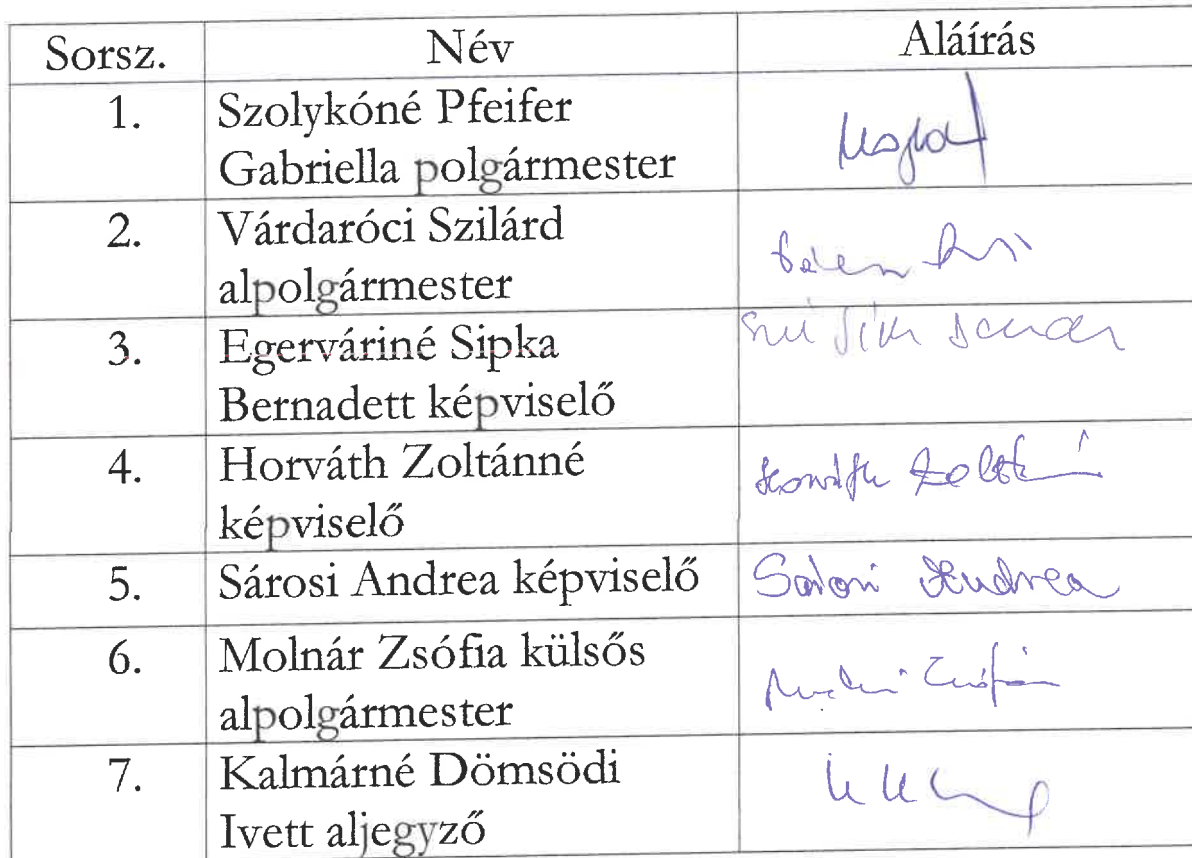 Sorsz. Név Aláírás
1. Szolykóné Pfeifer
Gabriella polgármester
2. Várdaróci Szilárd
alpolgármester
3. Egerváriné Sipka
Bernadett képviselő
4. Horváth Zoltánné
képviselő Horváth Zoltánné
5. Sárosi Andrea képviselő Sárosi Andrea
6. Molnár Zsófia külsős
alpolgármester
7. Kalmárné Dömsödi
Ivett aljegyző